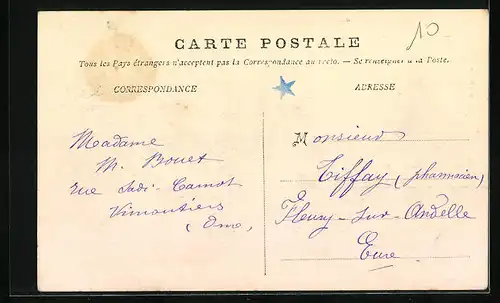 10
CARTE POSTALE
Tous les Pays étrangers n'acceptent pas la Correspondance au recto. — Se renseigner à la Poste.
CORRESPONDANCE
ADRESSE
Madame
M. Bouet
rue Sadi-Carnot
Vimoutiers
(Orne)
Monsieur
Tiffay (pharmacien)
Fleury-sur-Andelle
Eure